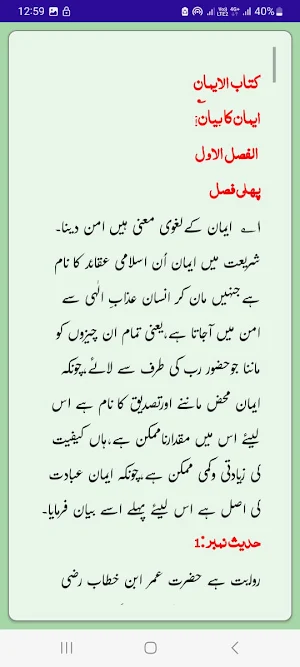 12:59 40%
کتاب الایمان
ایمان کا بیان؎
الفصل الاول
پہلی فصل
۱؎ ایمان کے لغوی معنی ہیں امن دینا۔
شریعت میں ایمان اُن اسلامی عقائد کا نام
ہے جنہیں مان کر انسان عذابِ الٰہی سے
امن میں آجاتا ہے،یعنی تمام ان چیزوں کو
ماننا جوحضور رب کی طرف سے لائے،چونکہ
ایمان محض ماننے اورتصدیق کا نام ہے اس
لیئے اس میں مقدارناممکن ہے،ہاں کیفیت
کی زیادتی وکمی ممکن ہے،چونکہ ایمان عبادت
کی اصل ہے اس لیئے پہلے اسے بیان فرمایا۔
حدیث نمبر:1
روایت ہے حضرت عمر ابن خطاب رضی